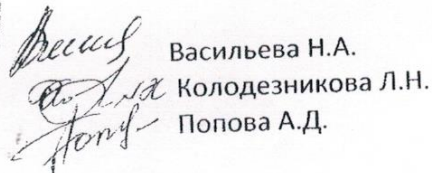 Васильева Н.А.
Колодезникова Л.Н.
Попова А.Д.